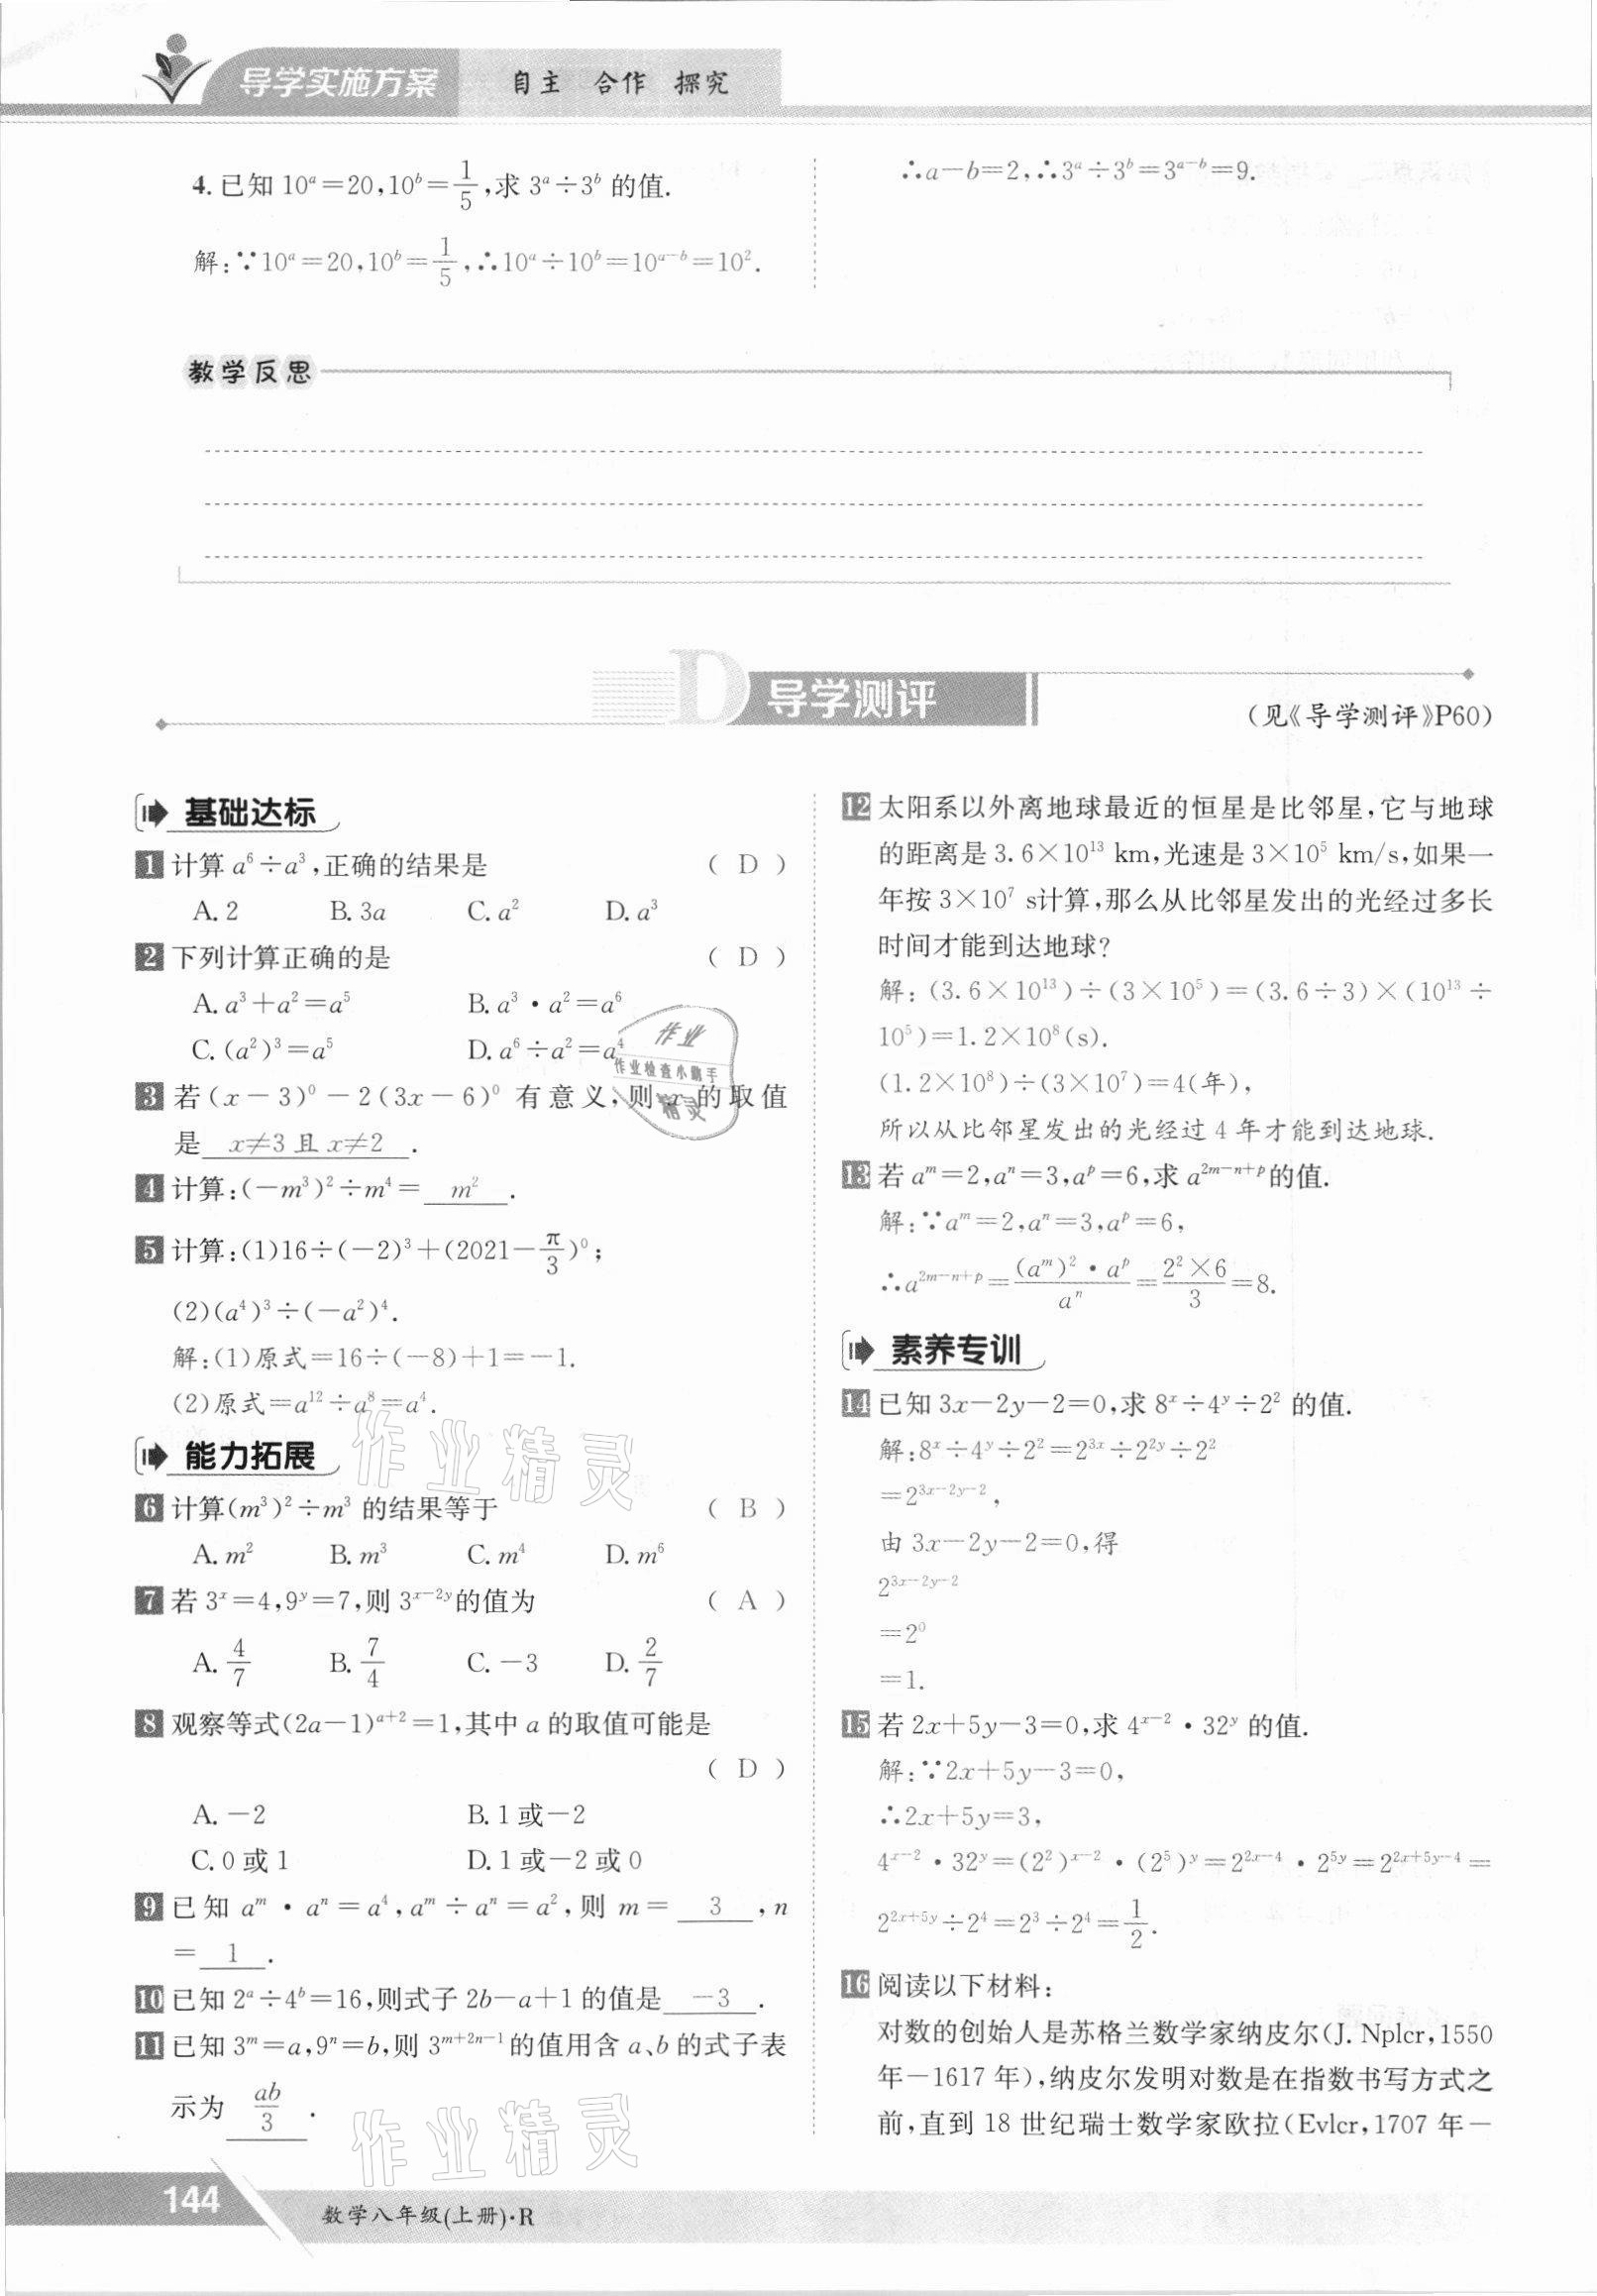 导学实施方案 自主 合作 探究
4.已知 10ᵃ=20,10ᵇ=1/5,求 3ᵃ÷3ᵇ 的值.
解:∵10ᵃ=20,10ᵇ=1/5,∴10ᵃ÷10ᵇ=10ᵃ⁻ᵇ=10².
∴a-b=2,∴3ᵃ÷3ᵇ=3ᵃ⁻ᵇ=9.
教学反思
D 导学测评
(见《导学测评》P60)
基础达标
1 计算 a⁶÷a³,正确的结果是 ( D )
A.2 B.3a C.a² D.a³
2 下列计算正确的是 ( D )
A.a³+a²=a⁵ B.a³·a²=a⁶
C.(a²)³=a⁵ D.a⁶÷a²=a⁴
3 若(x-3)⁰-2(3x-6)⁰ 有意义,则 x 的取值
是 x≠3 且 x≠2 .
4 计算:(-m³)²÷m⁴= m² .
5 计算:(1)16÷(-2)³+(2021-π/3)⁰;
(2)(a⁴)³÷(-a²)⁴.
解:(1)原式=16÷(-8)+1=-1.
(2)原式=a¹²÷a⁸=a⁴.
能力拓展
6 计算(m³)²÷m³ 的结果等于 ( B )
A.m² B.m³ C.m⁴ D.m⁶
7 若 3ˣ=4,9ʸ=7,则 3ˣ⁻²ʸ的值为 ( A )
A.4/7 B.7/4 C.-3 D.2/7
8 观察等式(2a-1)ᵃ⁺²=1,其中 a 的取值可能是
( D )
A.-2 B.1 或-2
C.0 或 1 D.1 或-2 或 0
9 已知 aᵐ·aⁿ=a⁴,aᵐ÷aⁿ=a²,则 m= 3 ,n
= 1 .
10 已知 2ᵃ÷4ᵇ=16,则式子 2b-a+1 的值是 -3 .
11 已知 3ᵐ=a,9ⁿ=b,则 3ᵐ⁺²ⁿ⁻¹的值用含 a、b 的式子表
示为 ab/3 .
12 太阳系以外离地球最近的恒星是比邻星,它与地球
的距离是 3.6×10¹³ km,光速是 3×10⁵ km/s,如果一
年按 3×10⁷ s计算,那么从比邻星发出的光经过多长
时间才能到达地球?
解:(3.6×10¹³)÷(3×10⁵)=(3.6÷3)×(10¹³÷
10⁵)=1.2×10⁸(s).
(1.2×10⁸)÷(3×10⁷)=4(年),
所以从比邻星发出的光经过 4 年才能到达地球.
13 若 aᵐ=2,aⁿ=3,aᵖ=6,求 a²ᵐ⁻ⁿ⁺ᵖ的值.
解:∵aᵐ=2,aⁿ=3,aᵖ=6,
∴a²ᵐ⁻ⁿ⁺ᵖ=(aᵐ)²·aᵖ/aⁿ=2²×6/3=8.
素养专训
14 已知 3x-2y-2=0,求 8ˣ÷4ʸ÷2² 的值.
解:8ˣ÷4ʸ÷2²=2³ˣ÷2²ʸ÷2²
=2³ˣ⁻²ʸ⁻²,
由 3x-2y-2=0,得
2³ˣ⁻²ʸ⁻²
=2⁰
=1.
15 若 2x+5y-3=0,求 4ˣ⁻²·32ʸ 的值.
解:∵2x+5y-3=0,
∴2x+5y=3,
4ˣ⁻²·32ʸ=(2²)ˣ⁻²·(2⁵)ʸ=2²ˣ⁻⁴·2⁵ʸ=2²ˣ⁺⁵ʸ⁻⁴=
2²ˣ⁺⁵ʸ÷2⁴=2³÷2⁴=1/2.
16 阅读以下材料:
对数的创始人是苏格兰数学家纳皮尔(J. Nplcr,1550
年-1617 年),纳皮尔发明对数是在指数书写方式之
前,直到 18 世纪瑞士数学家欧拉(Evlcr,1707 年-
作业
作业检查小助手
精灵
作业精灵
作业精灵
144
数学八年级(上册)·R